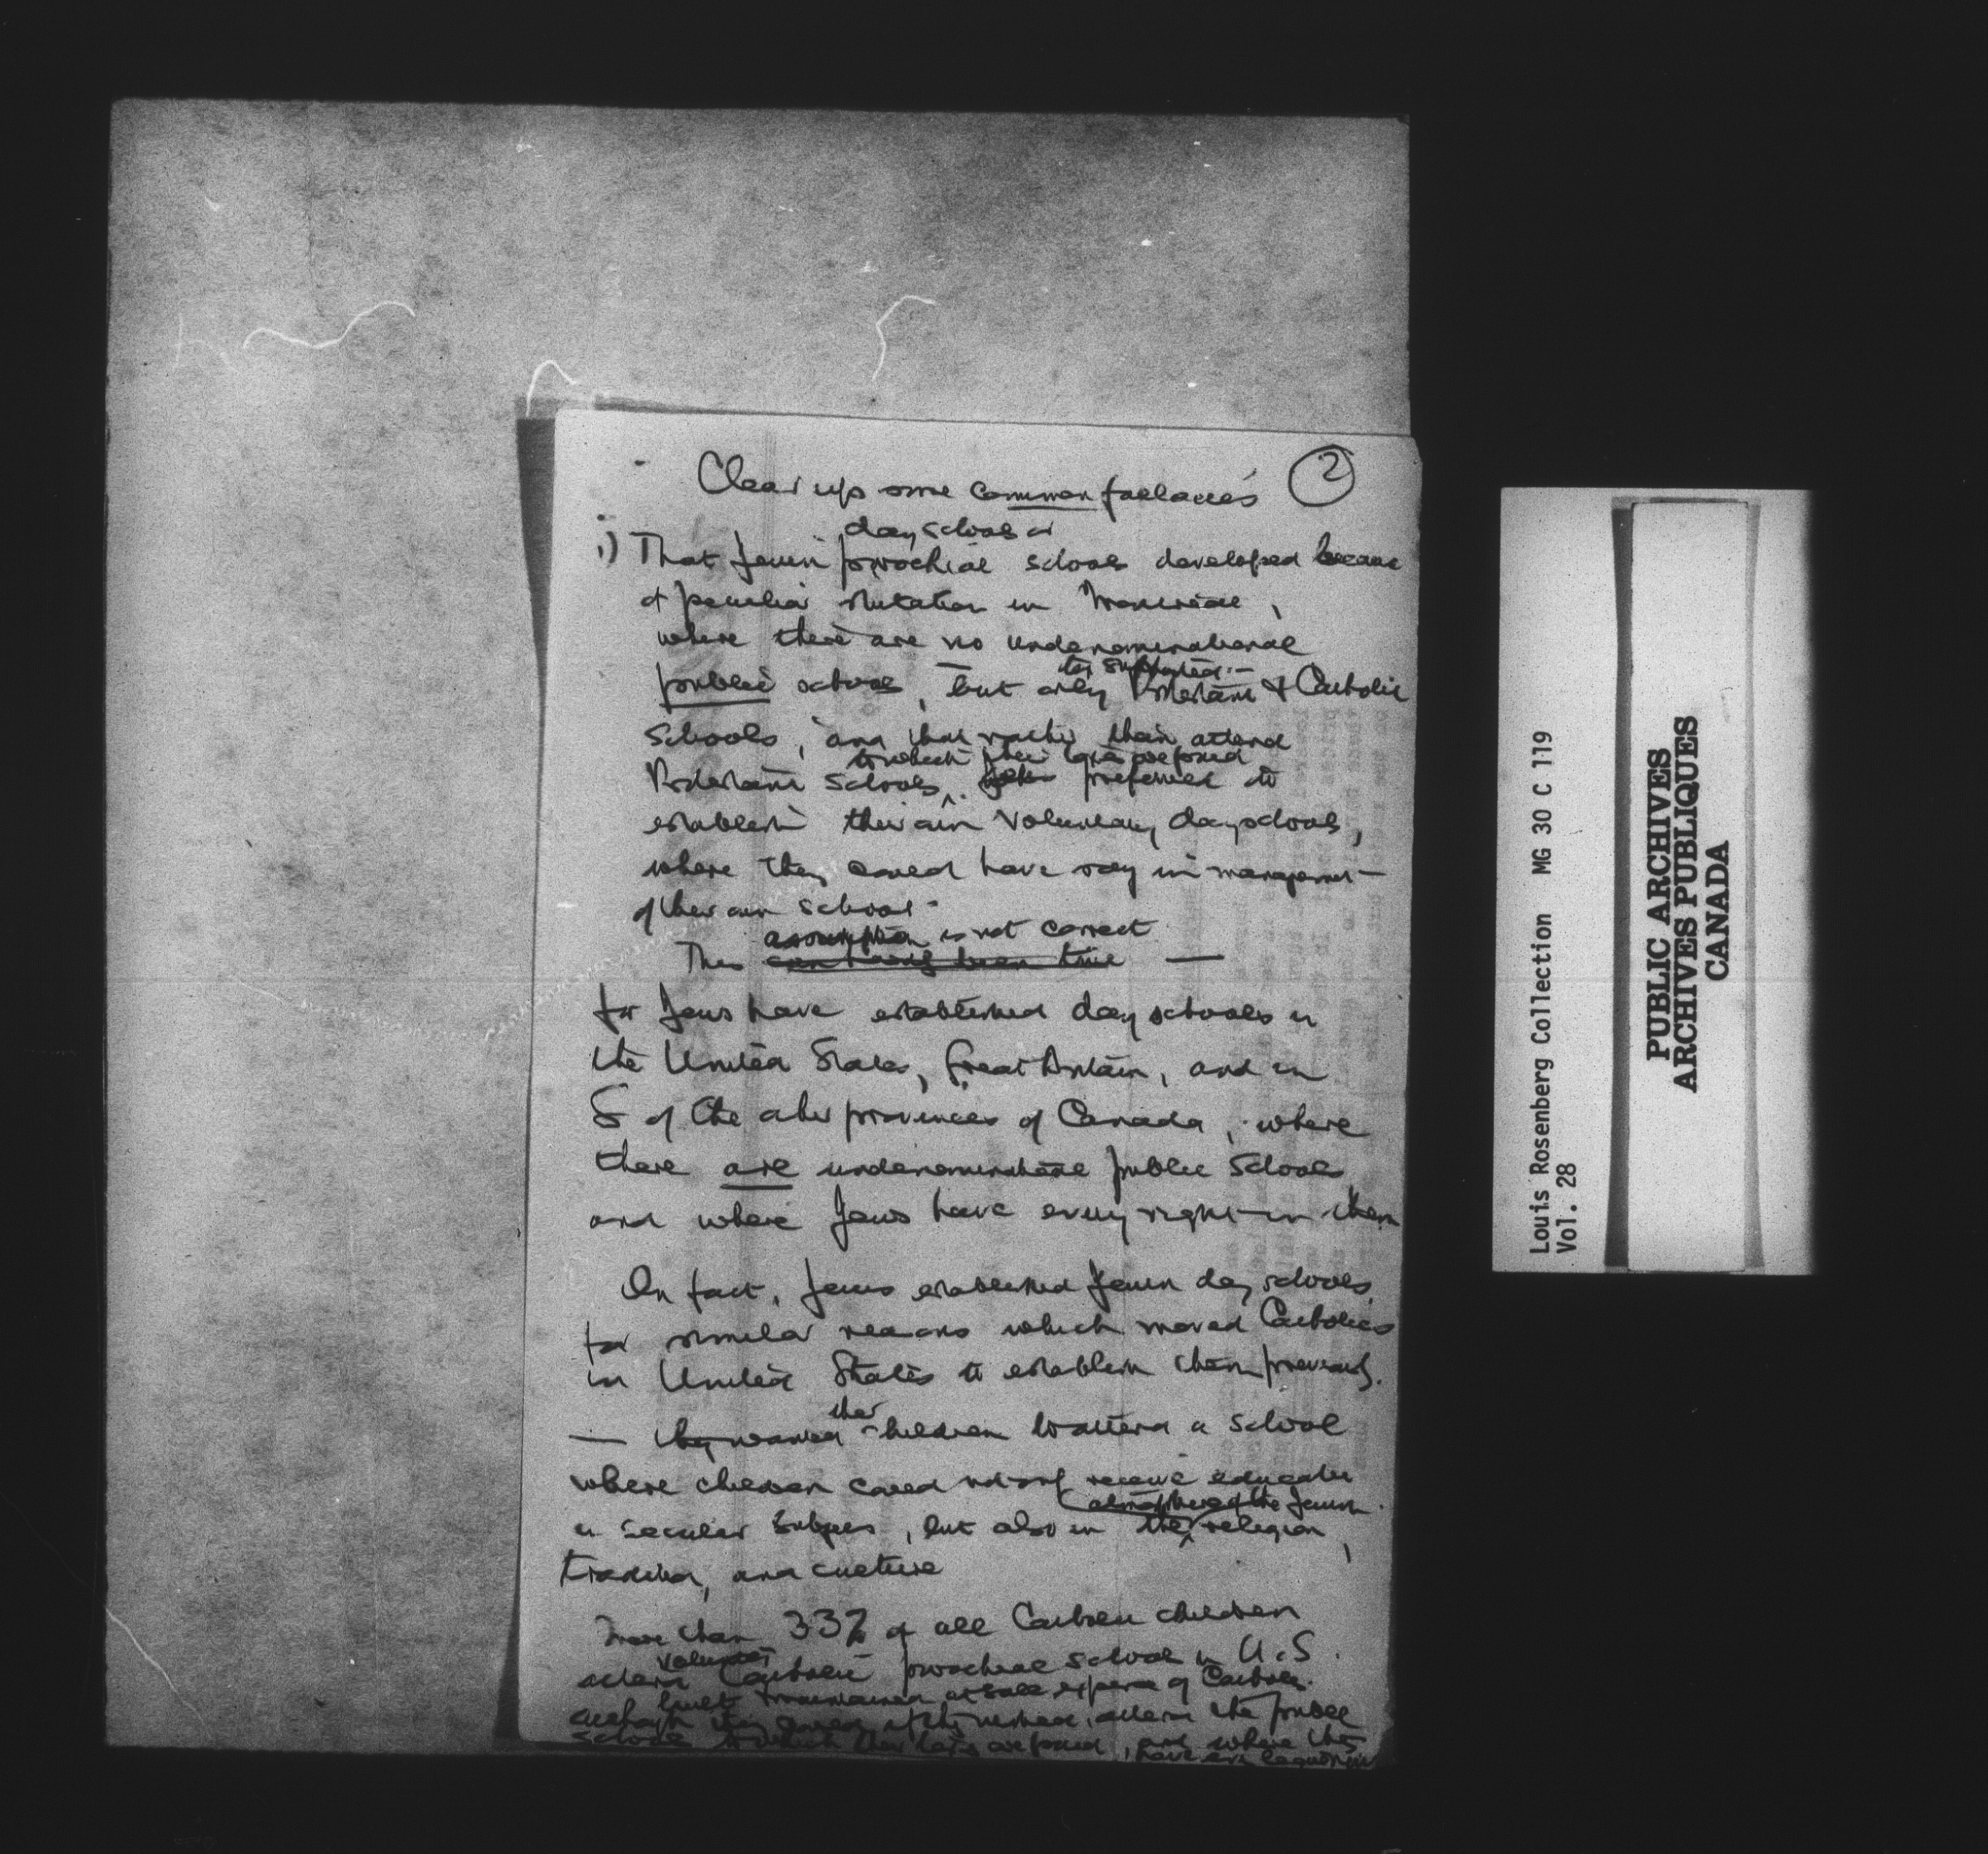 2
Clear up some common fallacies
day schools or
1) That Jewish parochial schools developed because
of peculiar situation in Montreal,
where there are no undenominational
public schools, but only
tax supported
Protestant & Catholic
Schools, and that rather than attend
to which their taxes are paid
Protestant Schools, preferred to
establish their own voluntary day schools,
where they could have say in management
of their own school
assumption is not correct
This can hardly been true —
for Jews have established day schools in
the United States, Great Britain, and in
5 of the other provinces of Canada, where
there are undenominational public schools
and where Jews have every right in them
In fact, Jews established Jewish day schools
for similar reasons which moved Catholics
in United States to establish them previously.
their
— they wanted children to attend a school
where children could not only receive education
atmosphere of the Jewish
in secular subjects, but also in the religion,
tradition, and culture
More than 33% of all Catholic children
voluntary
attend Catholic parochial schools in U.S.
built & maintained at sole expense of Catholics
although they could if they wished, attend the public
schools to which their taxes are paid, and where they
have
Louis Rosenberg Collection MG 30 C 119
Vol. 28
PUBLIC ARCHIVES
ARCHIVES PUBLIQUES
CANADA